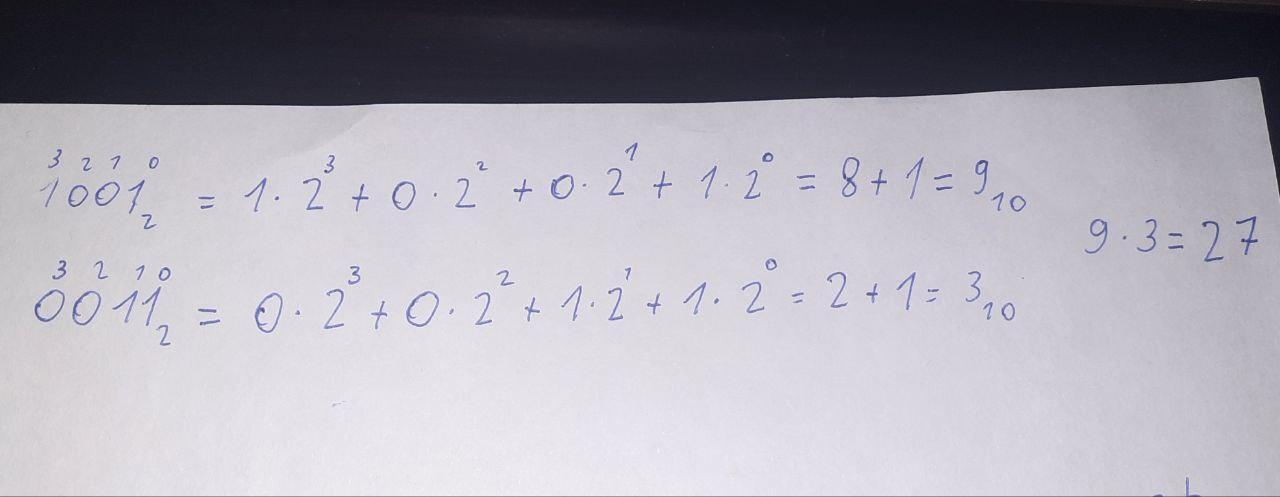 3 2 1 0
1001₂ = 1·2³ + 0·2² + 0·2¹ + 1·2⁰ = 8 + 1 = 9₁₀
9·3 = 27
3 2 1 0
0011₂ = 0·2³ + 0·2² + 1·2¹ + 1·2⁰ = 2 + 1 = 3₁₀